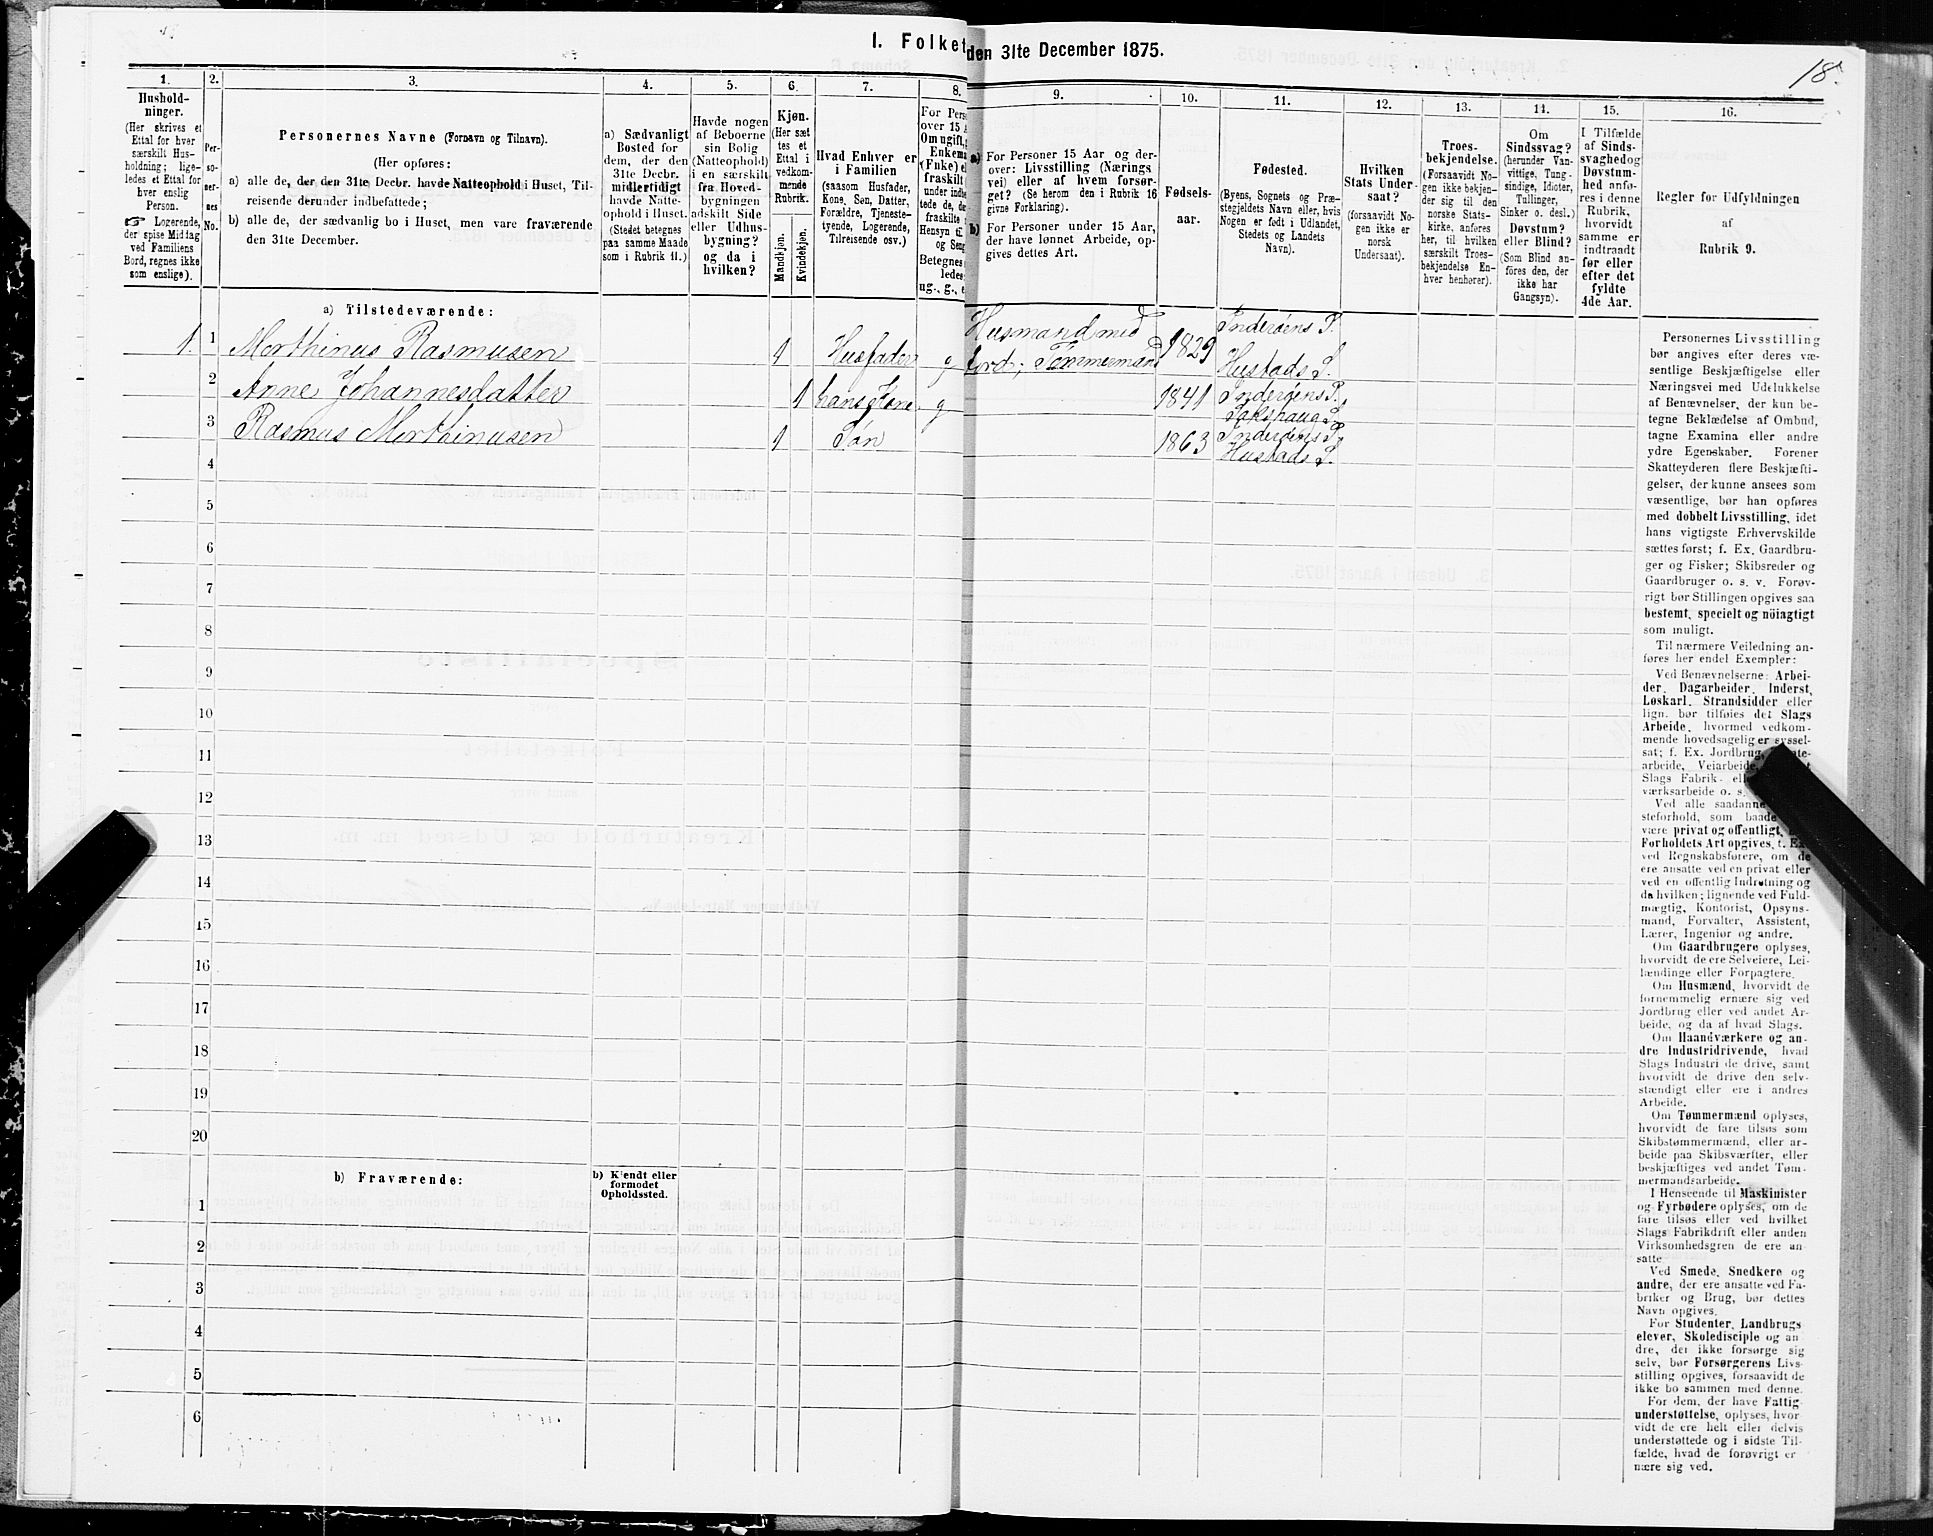 I. Folket
den 31te December 1875.
18.
1.
2.
3.
4.
5.
6.
7.
8.
9.
10.
11.
12.
13.
14.
15.
16.
Hushold-
ninger.
(Her skrives et
Ettal for hver
særskilt Hus-
holdning; lige-
ledes et Ettal for
hver enslig
Person.
☞ Logerende,
der spise Midtag
ved Familiens
Bord, regnes ikke
som enslige).
Per-
so-
ner-
nes
No.
Personernes Navne (Fornavn og Tilnavn).
(Her opføres:
a) alle de, der den 31te Decbr. havde Natteophold i Huset, Til-
reisende derunder indbefattede;
b) alle de, der sædvanlig bo i Huset, men vare fraværende
den 31te December.
a) Sædvanligt
Bosted for
dem, der den
31te Decbr.
midlertidigt
havde Natte-
ophold i Huset.
(Stedet betegnes
paa samme Maade
som i Rubrik 11.)
Havde nogen
af Beboerne
sin Bolig
(Natteophold)
i en særskilt
fra Hoved-
bygningen
adskilt Side
eller Udhus-
bygning?
og da i
hvilken?
Kjøn.
(Her sæt
tes et
Ettal i
vedkom-
mende
Rubrik.
Mandkjøn.
Kvindekjøn.
Hvad Enhver er
i Familien
(saasom Husfader,
Kone, Søn, Datter,
Forældre, Tjeneste-
tyende, Logerende,
Tilreisende osv.)
For Pers
over 15 A
Om ugift,
Enkema
(Enke) e
fraskilt
under indbe
tede de,
fraskilte
Hensyn til
og Seng
Betegnes
ledes
ug., g., e
a) For Personer 15 Aar og der-
over: Livsstilling (Nærings
vei) eller af hvem forsør-
get? (Se herom den i Rubrik 16
givne Forklaring).
b) For Personer under 15 Aar,
der have lønnet Arbeide, op-
gives dettes Art.
Fødsels-
aar.
Fødested.
(Byens, Sognets og Præ-
stegjeldets Navn eller, hvis
Nogen er født i Udlandet,
Stedets og Landets
Navn).
Hvilken
Stats Under-
saat?
(forsaavidt No-
gen ikke er
norsk
Undersaat).
Troes-
bekjendelse.
(Forsaavidt No-
gen ikke bekjen-
der sig til den
norske Stats-
kirke, anføres
her, til hvilken
særskilt Troes-
bekjendelse En-
hver henhører).
Om
Sindssvag?
(herunder Van-
vittige, Tung-
sindige, Idioter,
Tullinger,
Sinker o. desl.)
Døvstum?
eller Blind?
(Som Blind an-
føres den, der
ikke har
Gangsyn).
I Tilfælde
af Sinds-
svaghed og
Døvstum-
hed anfø-
res i denne
Rubrik,
hvorvidt
samme er
indtraadt
før eller
efter det
fyldte
4de Aar.
Regler for Udfyldningen
af
Rubrik 9.
a) Tilstedeværende:
1. 1 Morthinus Rasmusen 1 Husfader g Husmand med Jord; Tømmermand 1829 Inderøens P. Hustads S.
2 Anne Johannesdatter 1 hans Kone g 1841 Inderøens P. Sakshaug S.
3 Rasmus Morthinusen 1 Søn 1863 Inderøens P. Hustads S.
4
5
6
7
8
9
10
11
12
13
14
15
16
17
18
19
20
b) Fraværende:
b) Kjendt eller
formodet
Opholdssted.
1
2
3
4
5
6
Personernes Livsstilling
bør angives efter deres væ-
sentlige Beskjæftigelse eller
Næringsvei med Udelukkelse
af Benævnelser, der kun be-
tegne Beklædelse af Ombud,
tagne Examina eller andre
ydre Egenskaber. Forener
Skatteyderen flere Beskjæfti-
gelser, der kunne ansees som
væsentlige, bør han opføres
med dobbelt Livsstilling, idet
hans vigtigste Erhvervskilde
sættes først; f. Ex. Gaardbru-
ger og Fisker; Skibsreder og
Gaardbruger o. s. v. Forøv-
rigt bør Stillingen opgives saa
bestemt, specielt og nöiagtigt
som muligt.
Til nærmere Veiledning an-
føres her endel Exempler:
Ved Benævnelserne: Arbei-
der, Dagarbeider, Inderst,
Løskarl, Strandsidder eller
lign. bør tilføies det Slags
Arbeide, hvormed vedkom-
mende hovedsagelig er syssel-
sat; f. Ex. Jordbrug,
arbeide, Veiarbeide,
Slags Fabrik-
værksarbeide o. s.
Ved alle saadanne
steforhold, som baade
være privat og offentligt,
Forholdets Art opgives, f. Ex
ved Regnskabsførere, om de
ere ansatte ved en privat eller
ved en offentlig Indretning og
da hvilken; lignende ved Fuld-
mægtig, Kontorist, Opsyns-
mand, Forvalter, Assistent,
Lærer, Ingeniør og andre.
Om Gaardbrugere oplyses,
hvorvidt de ere Selveiere, Lei-
lændinge eller Forpagtere.
Om Husmænd, hvorvidt de
fornemmelig ernære sig ved
Jordbrug eller ved andet Ar-
beide, og da af hvad Slags.
Om Haandværkere og an-
dre Industridrivende, hvad
Slags Industri de drive, samt
hvorvidt de drive den selv-
stændigt eller ere i andres
Arbeide.
Om Tømmermænd oplyses,
hvorvidt de fare tilsøs som
Skibstømmermænd, eller ar-
beide paa Skibsværfter, eller
beskjæftiges ved andet Tøm-
mermandsarbeide.
I Henseende til Maskinister
og Fyrbødere oplyses, om de
fare tilsøs eller ved hvilket
Slags Fabrikdrift eller anden
Virksomhedsgren de ere an-
satte
Ved Smede, Snedkere og
andre, der ere ansatte ved Fa-
briker og Brug, bør dettes
Navn opgives.
For Studenter, Landbrugs
elever, Skoledisciple og an
dre, der ikke forsørge sig
selv, bør Forsørgerens Livs-
stilling opgives, forsaavidt de
ikke bo sammen med denne.
For dem, der have Fattig
understøttelse, oplyses, hvor
vidt de ere helt eller delvis
understøttede og i sidste Til-
fælde, hvad de forøvrigt er
nære sig ved.